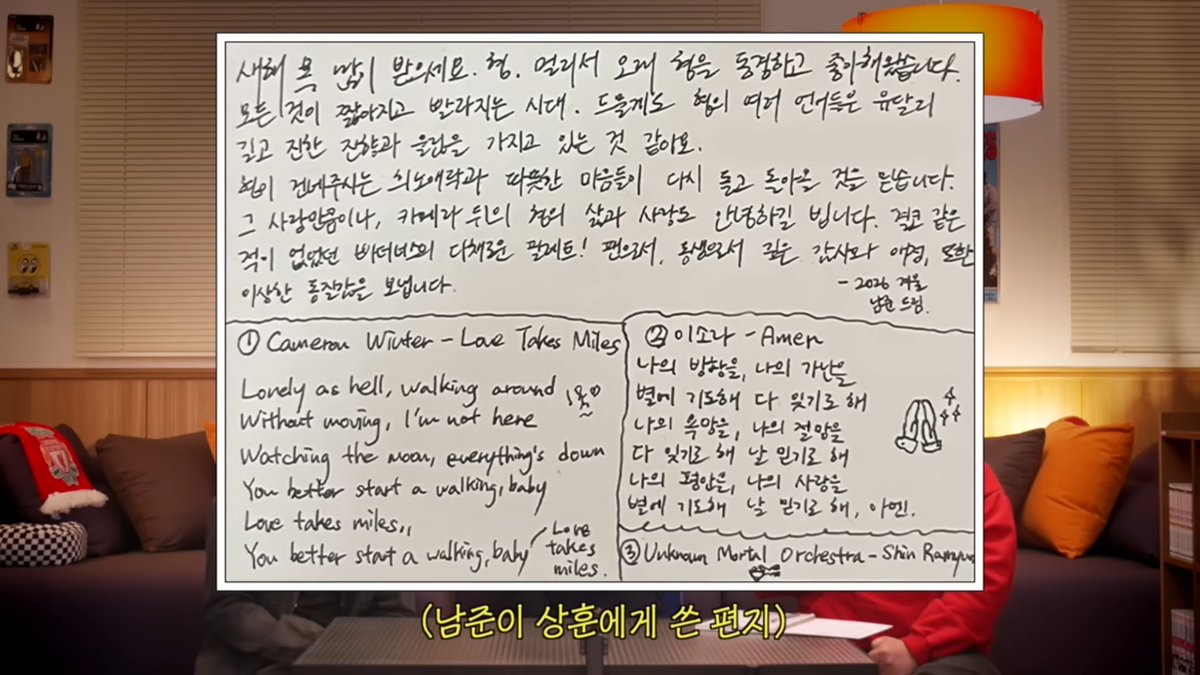 새해 복 많이 받으세요. 형. 멀리서 오래 형을 동경하고 좋아해왔습니다.
모든 것이 짧아지고 빨라지는 시대. 드물게도 형의 여러 언어들은 유달리
길고 진한 잔향과 울림을 가지고 있는 것 같아요.
형이 건네주시는 희노애락과 따뜻한 마음들이 다시 돌고 돌아올 것을 믿습니다.
그 사랑만큼이나, 카메라 뒤의 형의 삶과 사랑도 안녕하길 빕니다. 결코 같은
적이 없었던 빠더너스의 다채로운 팔레트! 팬으로서, 동생으로서 깊은 감사와 애정, 또한
이상한 동질감을 보냅니다.
- 2026 겨울
남준 드림.
① Cameron Winter - Love Takes Miles
Lonely as hell, walking around
Without moving, I'm not here
Watching the moon, everything's down
You better start a walking, baby
Love takes miles,,
You better start a walking, baby
Love
takes
miles.
② 이소라 - Amen
나의 방황을, 나의 가난을
별에 기도해 다 잊기로 해
나의 욕망을, 나의 절망을
다 잊기로 해 날 믿기로 해
나의 평안을, 나의 사랑을
별에 기도해 날 믿기로 해, 아멘.
③ Unknown Mortal Orchestra - Shin Ramyun
(남준이 상훈에게 쓴 편지)